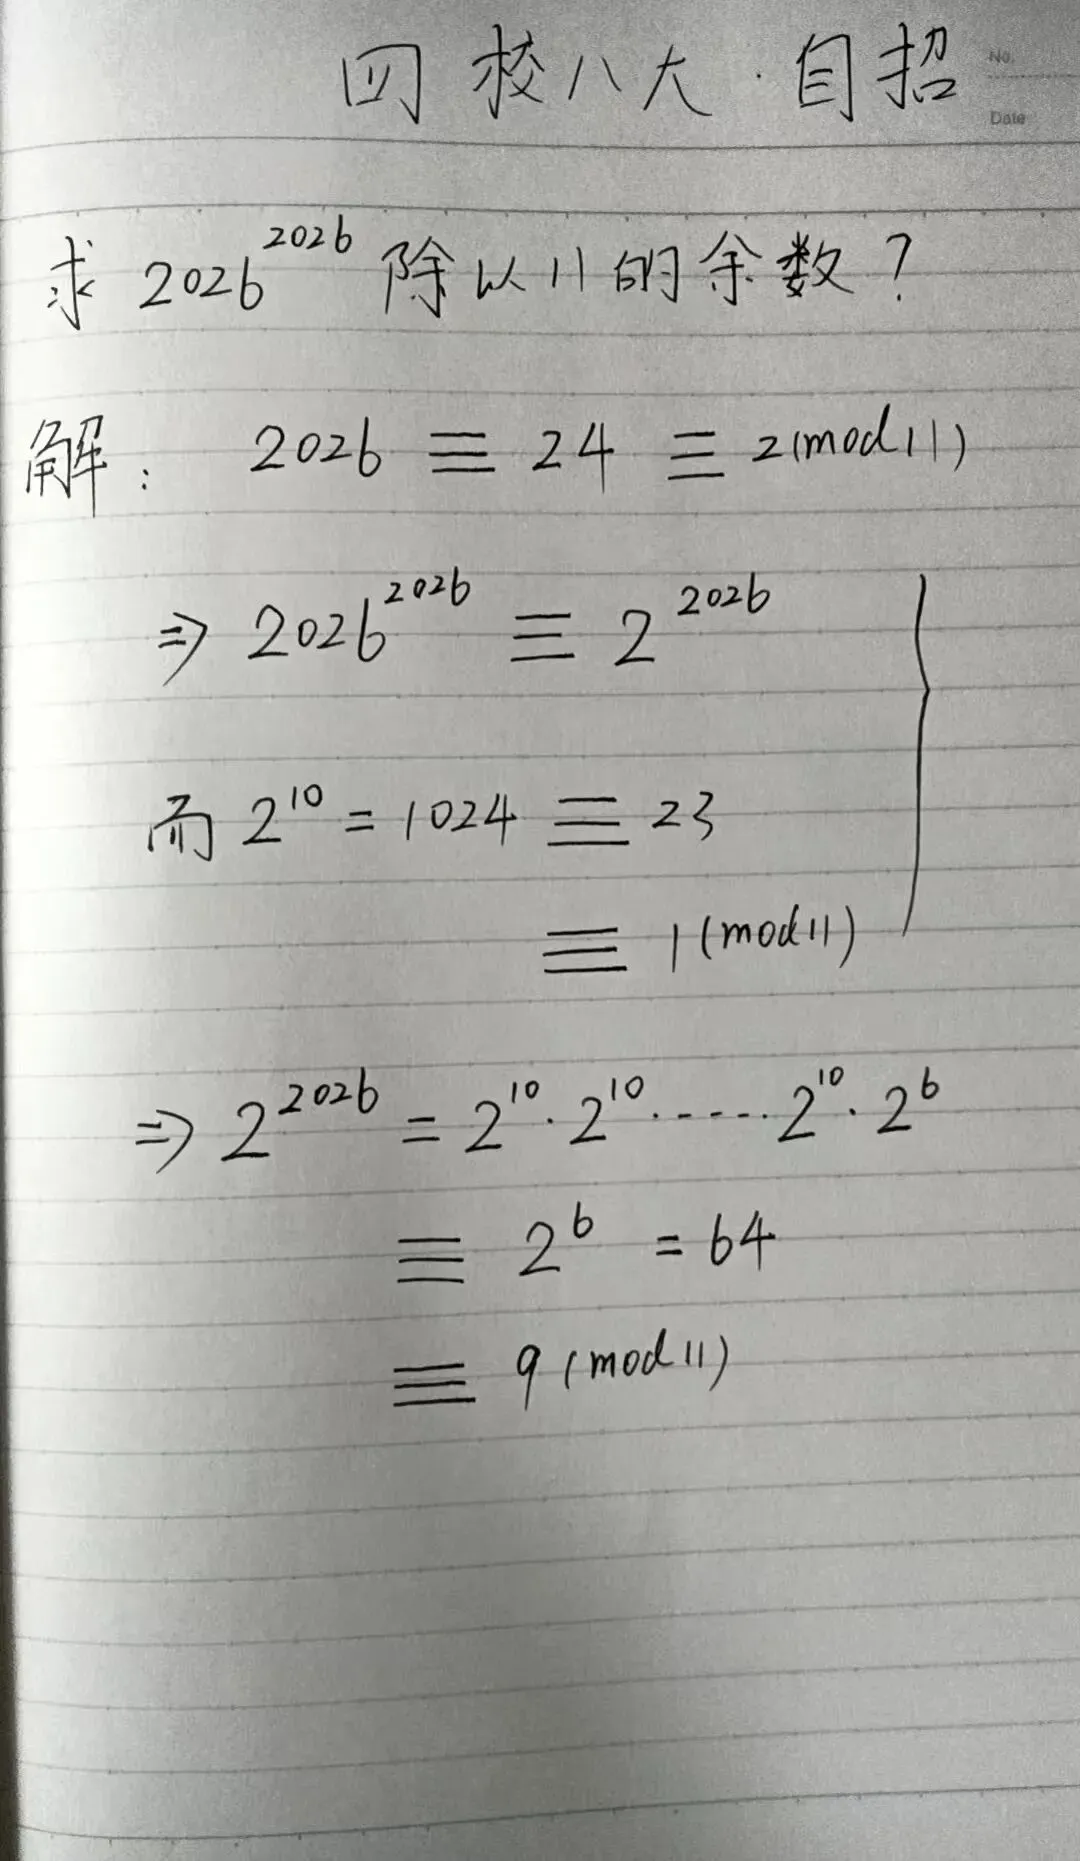 四校八大·自招
No.
Date
求 2026^2026 除以11的余数?
解: 2026 ≡ 24 ≡ 2(mod11)
⇒ 2026^2026 ≡ 2^2026
而 2^10 = 1024 ≡ 23
≡ 1(mod11)
⇒ 2^2026 = 2^10·2^10·-----2^10·2^6
≡ 2^6 = 64
≡ 9(mod11)